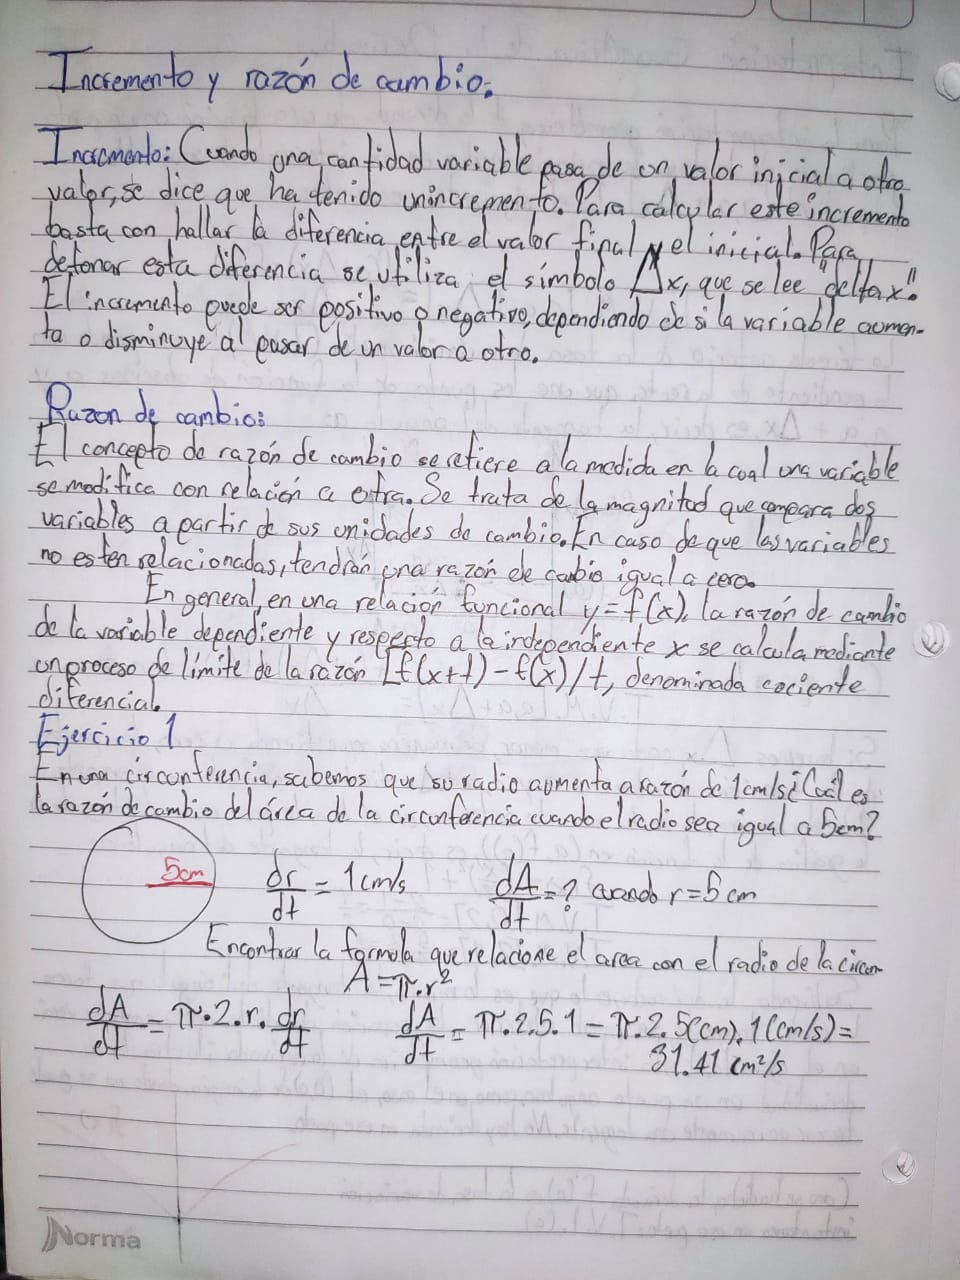 Incremento y razón de cambio.
Incremento: Cuando una cantidad variable pasa de un valor inicial a otro
valor, se dice que ha tenido un incremento. Para calcular este incremento
basta con hallar la diferencia entre el valor final y el inicial. Para
detonar esta diferencia se utiliza el símbolo Δx, que se lee "delta x".
El incremento puede ser positivo o negativo, dependiendo de si la variable aumen-
ta o disminuye al pasar de un valor a otro.
Razon de cambio:
El concepto de razón de cambio se refiere a la medida en la cual una variable
se modifica con relación a otra. Se trata de la magnitud que compara dos
variables a partir de sus unidades de cambio. En caso de que las variables
no esten relacionadas, tendrán una razón de cambio igual a cero.
En general, en una relación funcional y=f(x), la razón de cambio
de la variable dependiente y respecto a la independiente x se calcula mediante
un proceso de límite de la razón [f(x+t)-f(x)/t, denominada cociente
diferencial.
Ejercicio 1
En una circonferencia, sabemos que su radio aumenta a razón de 1cm/s ¿Cuál es
la razón de cambio del área de la circunferencia cuando el radio sea igual a 5cm?
5cm dr/dt = 1cm/s dA/dt = ? cuando r = 5cm
Encontrar la formula que relacione el area con el radio de la circun
A = π.r²
dA/dt = π.2.r.dr/dt dA/dt = π.2.5.1 = π.2.5(cm).1(cm/s)=
31.41 cm²/s
Norma